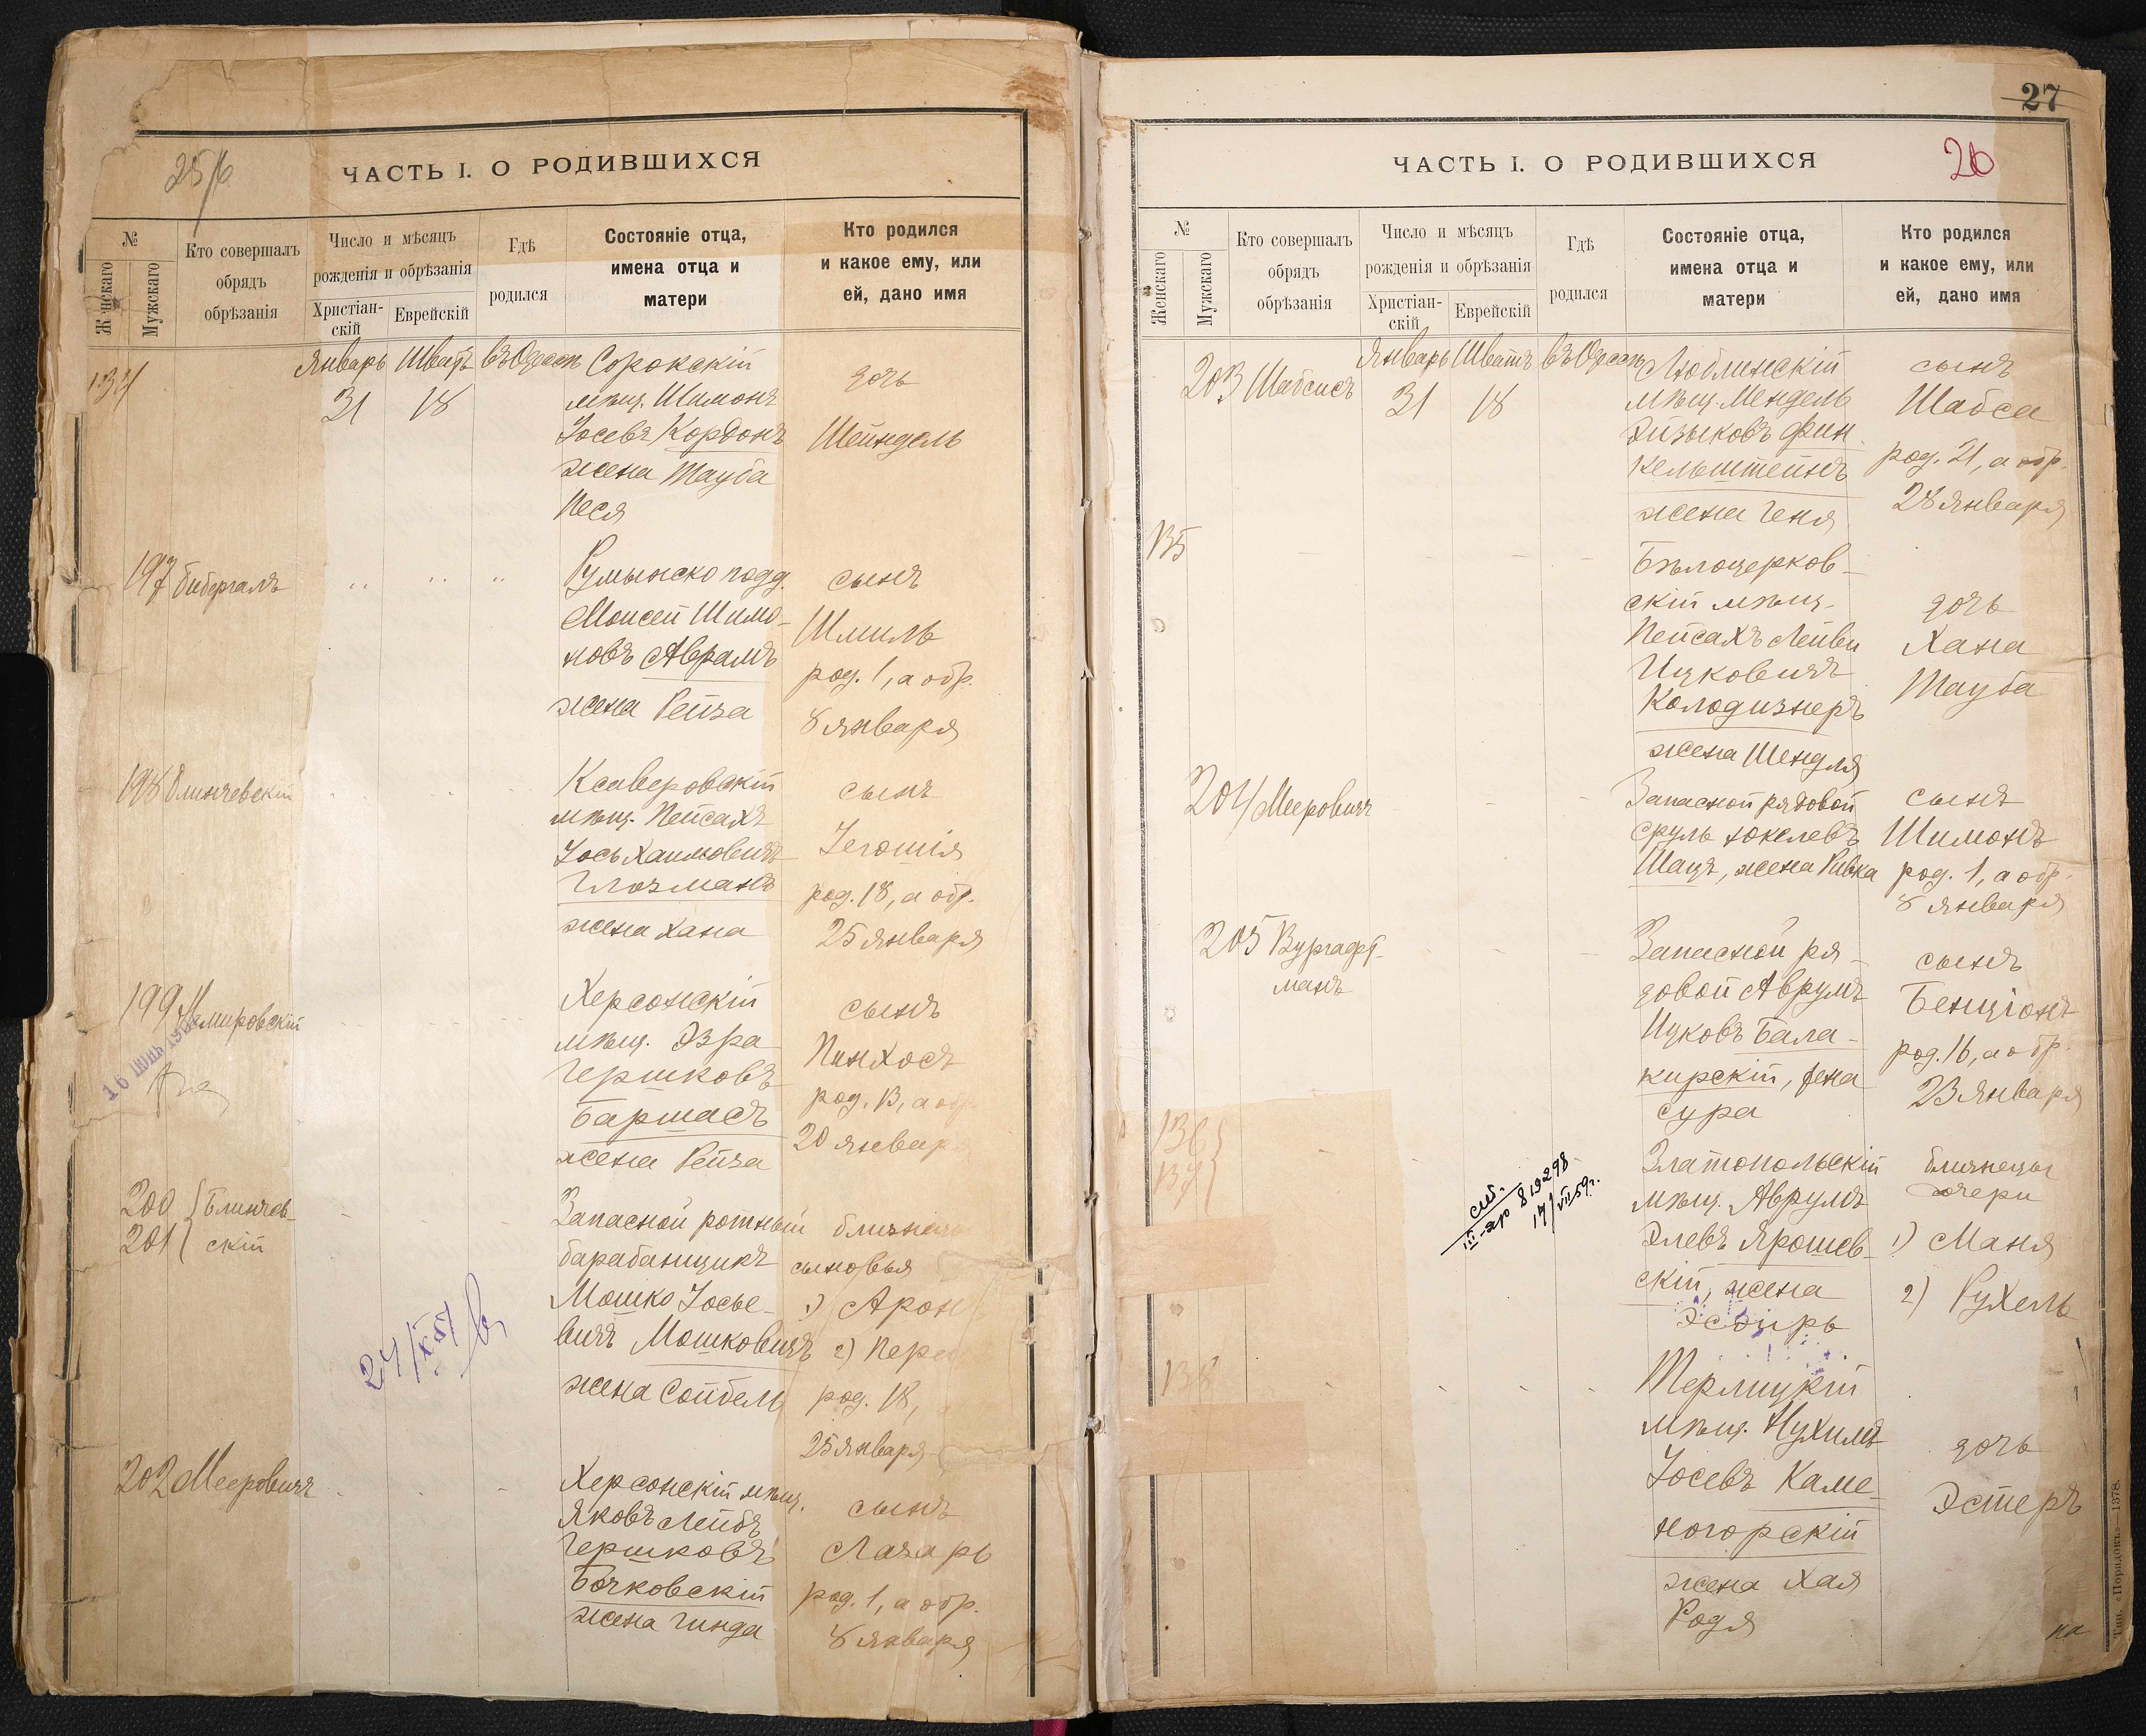 ЧАСТЬ I. О РОДИВШИХСЯ
№
Женскаго
Мужскаго
Кто совершалъ
обрядъ
обрѣзанія
Число и мѣсяцъ
рожденія и обрѣзанія
Христіан-
скій
Еврейскій
Гдѣ
родился
Состояніе отца,
имена отца и
матери
Кто родился
и какое ему, или
ей, дано имя
134
Январь Шватъ въ Одессѣ
31 18
Сорокскій
мѣщ. Шимонъ
Іосевъ Кордонъ
жена Тауба
Песя
дочь
Шейндель
197 Бибергалъ
Румынско подд.
Моисей Шимо-
новъ Аврамъ
жена Рейза
сынъ
Шмиль
род. 1, а обр.
8 января
198 Блинчевскій
Ксаверовскій
мѣщ. Пейсахъ
Іось Хаимовичъ
Глозманъ
жена Хана
сынъ
Іегошія
род. 18, а обр.
25 января
199 Немировскій
16 ИЮНЬ
Херсонскій
мѣщ. Эзра
Гершковъ
Баршасъ
жена Рейза
сынъ
Пинхосъ
род. 13, а обр
20 январ
200 Блинчев-
201 скій
24/X 57
Запасной ротный
барабанщикъ
Мошко Іосье-
вичъ Мошковичъ
жена Сойбель
близнецы
сыновья
1) Арон
2) Пере
род. 18,
25 января
202 Мееровичъ
Херсонскій мѣщ.
Яковъ Лейбъ
Гершковъ
Бочковскій
жена Гинда
сынъ
Лазарь
род. 1, а обр.
8 января
27
26
ЧАСТЬ I. О РОДИВШИХСЯ
№
Женскаго
Мужскаго
Кто совершалъ
обрядъ
обрѣзанія
Число и мѣсяцъ
рожденія и обрѣзанія
Христіан-
скій
Еврейскій
Гдѣ
родился
Состояніе отца,
имена отца и
матери
Кто родился
и какое ему, или
ей, дано имя
203 Шабсисъ
Январь Шватъ въ Одессѣ
31 18
Люблинскій
мѣщ. Мендель
Эйзыковъ Фин
кельштейнъ
жена Геня
сынъ
Шабса
род. 21, а обр.
28 января
135
Бѣлоцерков-
скій мѣщ.
Пейсахъ Лейви
Ицковичъ
Колодизнеръ
жена Шендля
дочь
Хана
Тауба
204 Мееровичъ
Запасной рядовой
Сруль Іокелевъ
Шацъ, жена Ривка
сынъ
Шимонъ
род. 1, а обр.
8 января
205 Вургафт-
манъ
Запасной ря-
довой Аврумъ
Ицковъ Бала-
кирскій, жена
Сура
сынъ
Бенціонъ
род. 16, а обр.
23 января
136
137
819298
14/VII 59г.
Златопольскій
мѣщ. Аврумъ
Элевъ Ярошев-
скій, жена
Эсфирь
близнецы
дочери
1) Маня
2) Рухель
138
Терлицкій
мѣщ. Нухимъ
Іосевъ Каме-
ногорскій
жена Хая
Родя
дочь
Эстеръ
на
Тип. «Порядокъ»—1378.